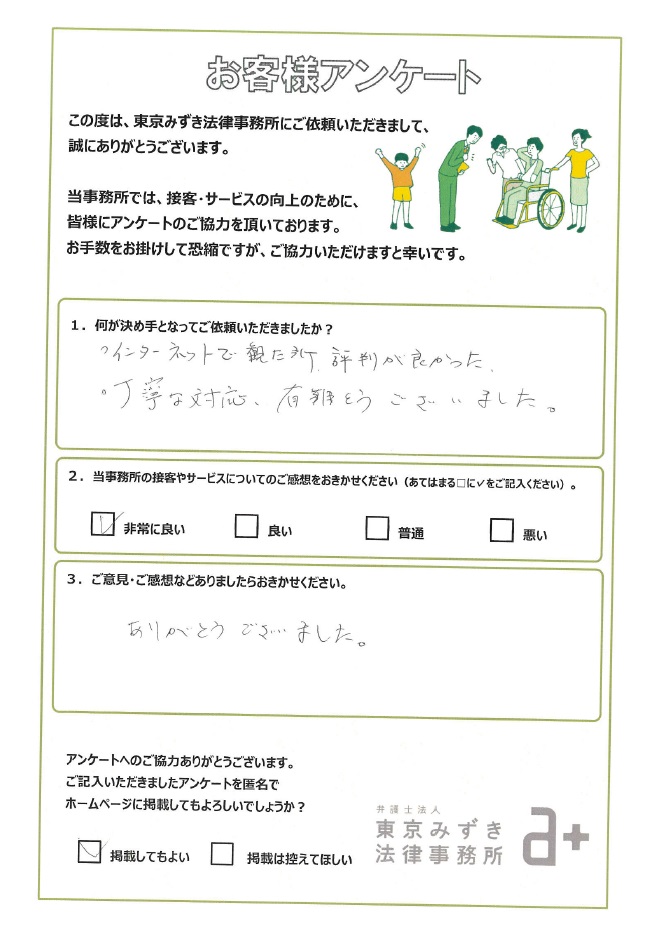 お客様アンケート
この度は、東京みずき法律事務所にご依頼いただきまして、
誠にありがとうございます。
当事務所では、接客・サービスの向上のために、
皆様にアンケートのご協力を頂いております。
お手数をお掛けして恐縮ですが、ご協力いただけますと幸いです。
1．何が決め手となってご依頼いただきましたか？
◦インターネットで観た所、評判が良かった。
◦丁寧な対応、有難とうございました。
2．当事務所の接客やサービスについてのご感想をおきかせください（あてはまる□に✓をご記入ください）。
☑ 非常に良い □ 良い □ 普通 □ 悪い
3．ご意見・ご感想などありましたらおきかせください。
ありがとうございました。
アンケートへのご協力ありがとうございます。
ご記入いただきましたアンケートを匿名で
ホームページに掲載してもよろしいでしょうか？
☑ 掲載してもよい □ 掲載は控えてほしい
弁護士法人
東京みずき
法律事務所
a+